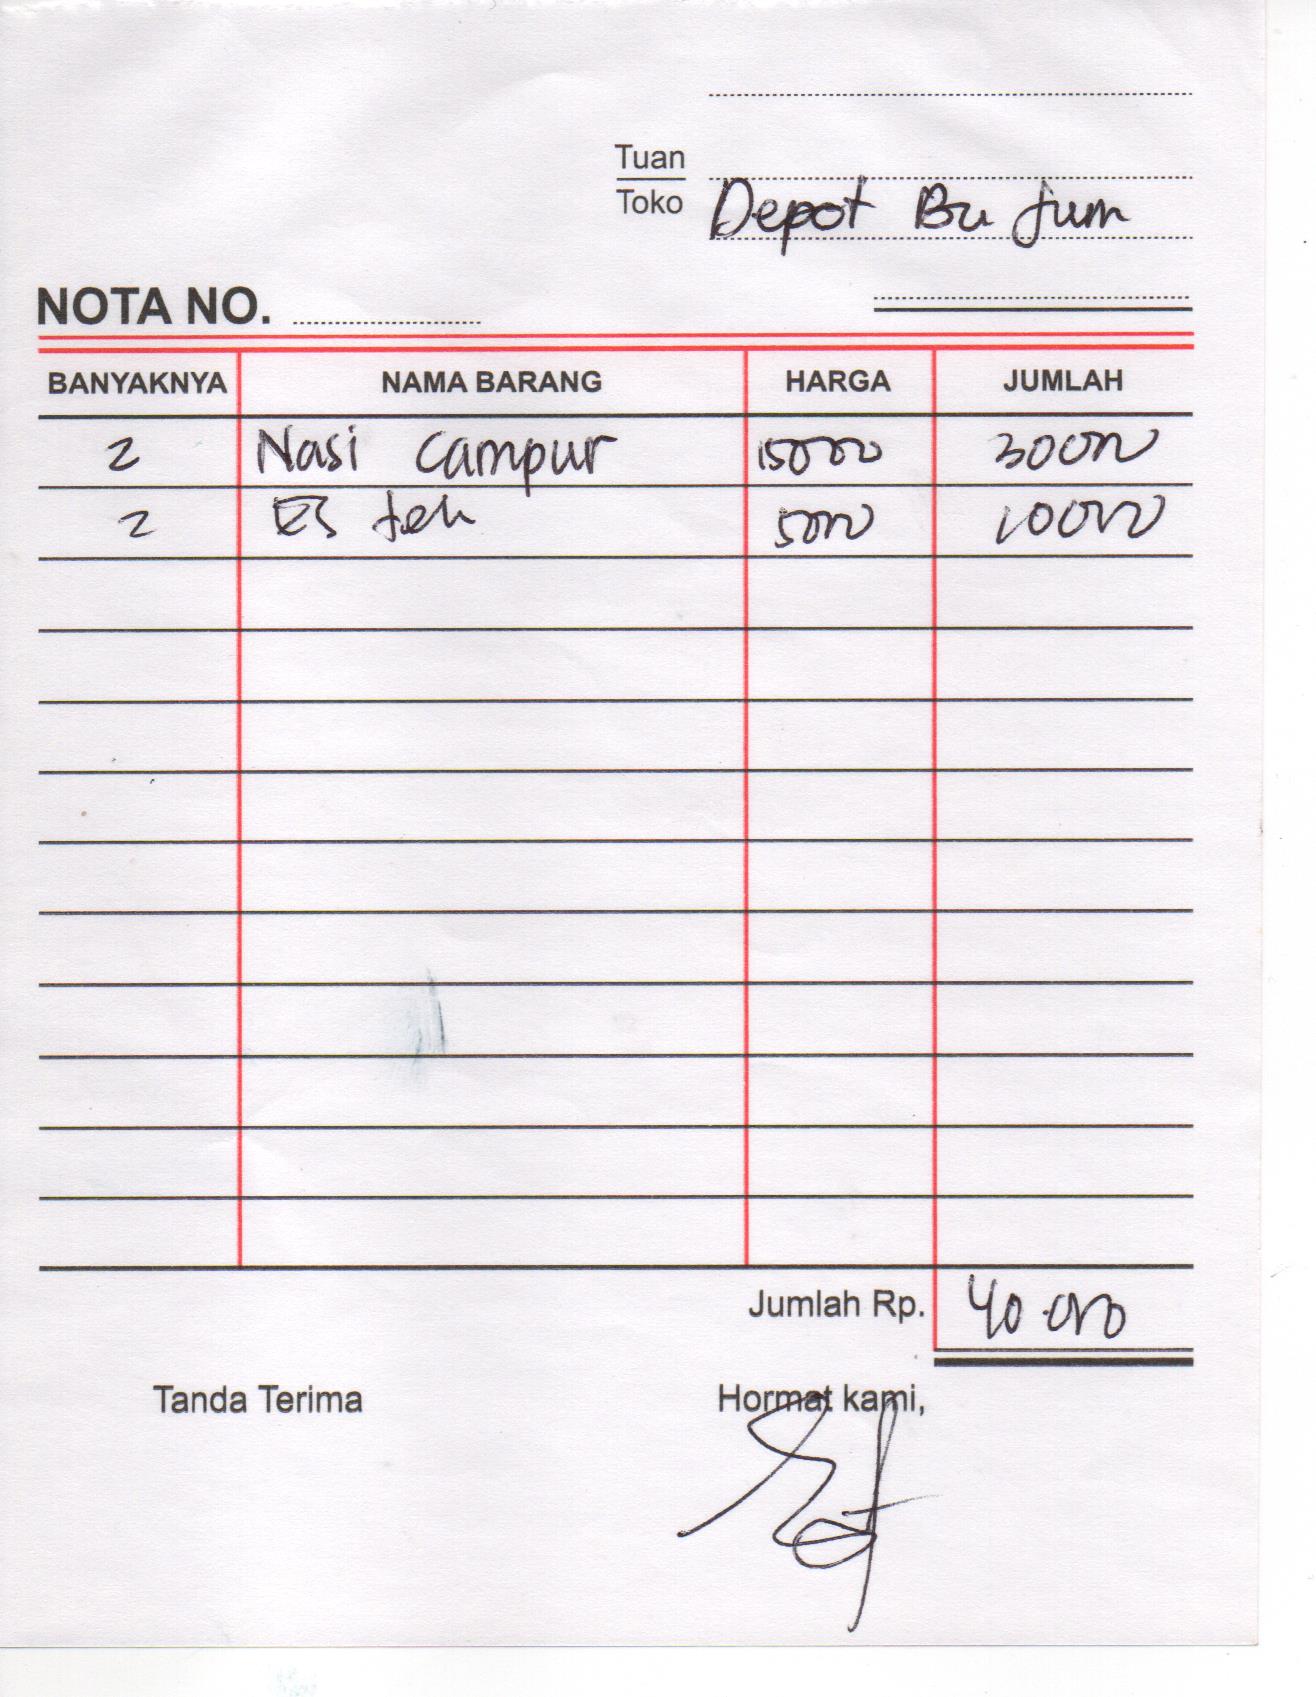 Tuan
Toko Depot Bu Jum
NOTA NO.
BANYAKNYA NAMA BARANG HARGA JUMLAH
2 Nasi Campur 15000 30000
2 Es teh 5000 10000
Jumlah Rp. 40.000
Tanda Terima Hormat kami,